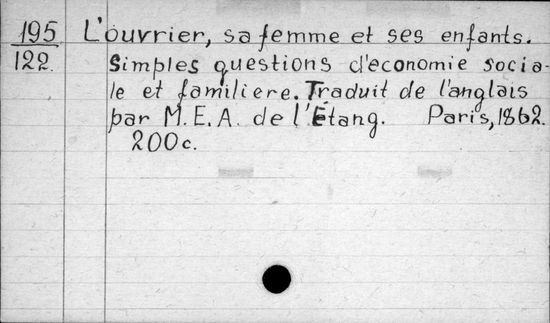 195 L'ouvrier, sa femme et ses enfants.
122. Simples questions d'economie socia-
le et familiere. Traduit de l'anglais
par M. E. A. de l'Étang. Paris, 1862.
200c.